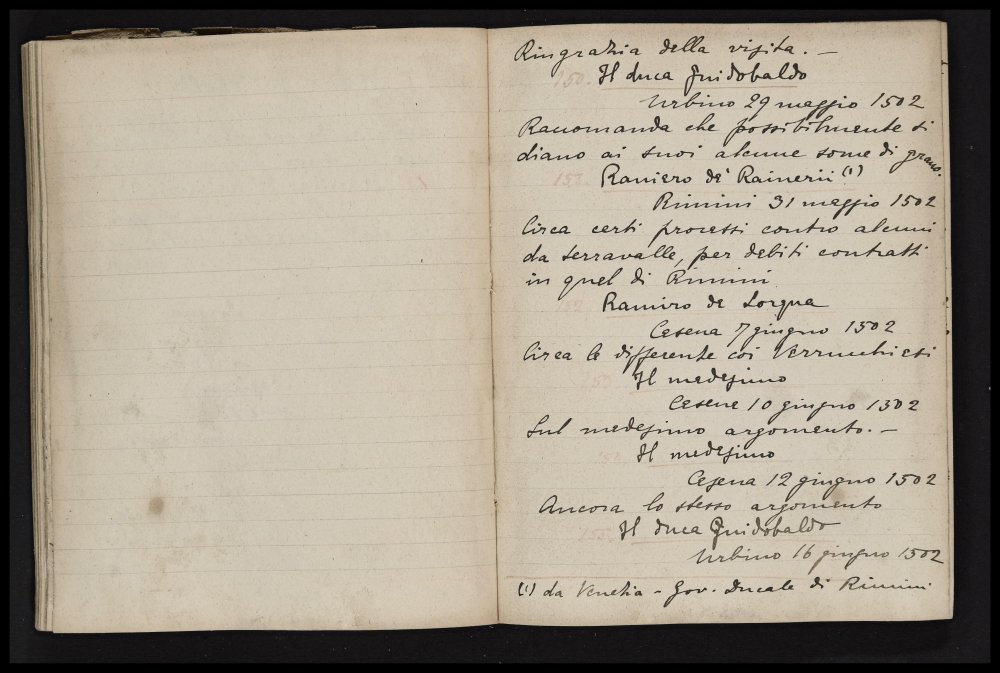 Ringrazia della visita. —
Il duca Guidobaldo
Urbino 29 maggio 1502
Raccomanda che possibilmente si
diano ai suoi alcune some di grano.
Raniero de' Rainerii (1)
Rimini 31 maggio 1502
Circa certi processi contro alcuni
da Serravalle, per debiti contratti
in quel di Rimini
Ramiro de Lorqua
Cesena 7 giugno 1502
Circa le differente coi Verrucchiesi
Il medesimo
Cesena 10 giugno 1502
Sul medesimo argomento. —
Il medesimo
Cesena 12 giugno 1502
Ancora lo stesso argomento
Il duca Guidobaldo
Urbino 16 giugno 1502
(1) da Venezia - Gov. ducale di Rimini